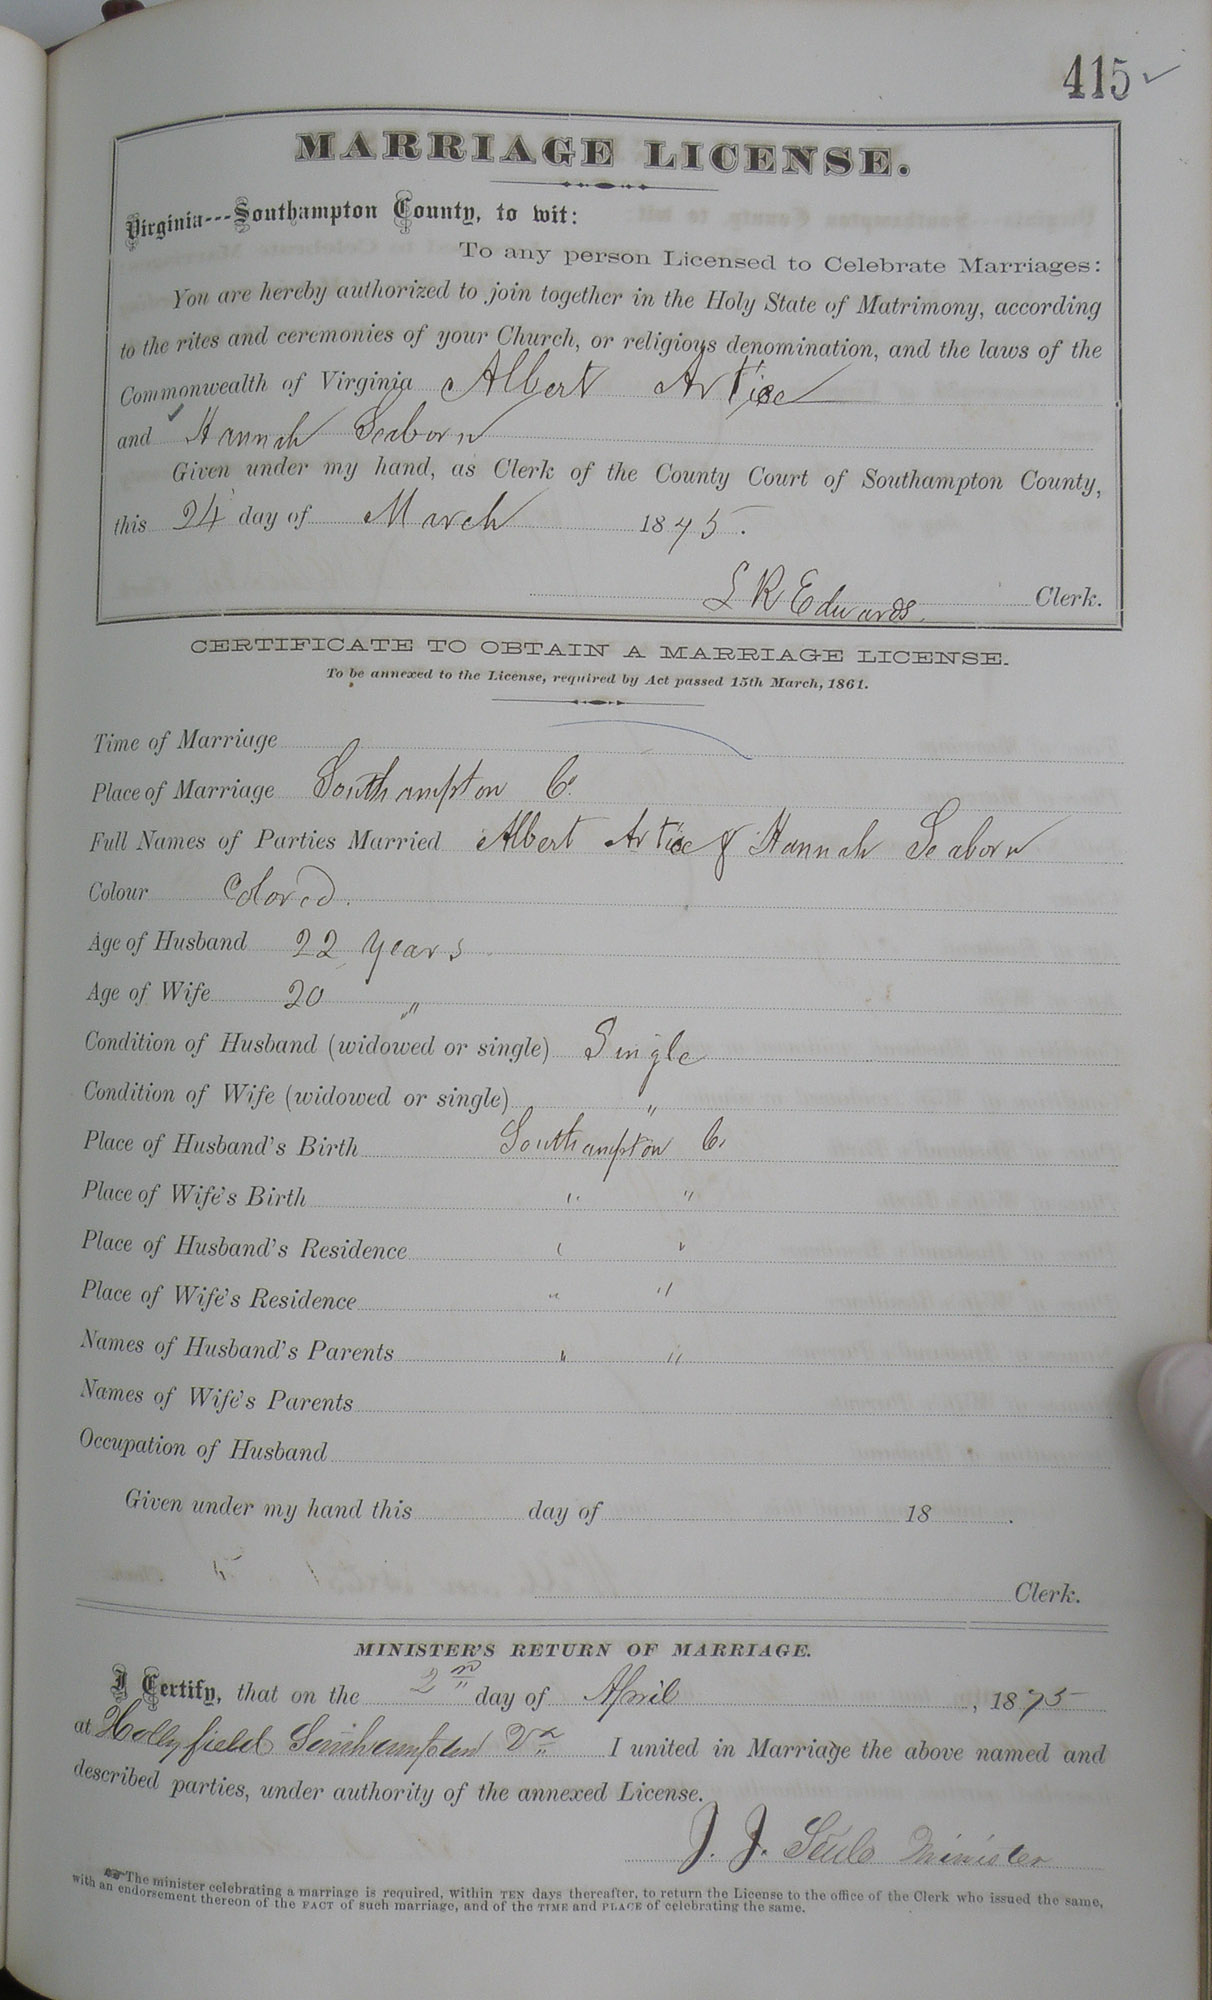 415 ✓
MARRIAGE LICENSE.
Virginia---Southampton County, to wit:
To any person Licensed to Celebrate Marriages:
You are hereby authorized to join together in the Holy State of Matrimony, according
to the rites and ceremonies of your Church, or religious denomination, and the laws of the
Commonwealth of Virginia Albert Artice
and Hannah Seaborn
Given under my hand, as Clerk of the County Court of Southampton County,
this 24 day of March 1875.
L R Edwards Clerk.
CERTIFICATE TO OBTAIN A MARRIAGE LICENSE.
To be annexed to the License, required by Act passed 15th March, 1861.
Time of Marriage
Place of Marriage Southampton Co.
Full Names of Parties Married Albert Artice & Hannah Seaborn
Colour Colored.
Age of Husband 22 years
Age of Wife 20 "
Condition of Husband (widowed or single) Single
Condition of Wife (widowed or single) "
Place of Husband's Birth Southampton Co.
Place of Wife's Birth " "
Place of Husband's Residence " "
Place of Wife's Residence " "
Names of Husband's Parents " "
Names of Wife's Parents
Occupation of Husband
Given under my hand this day of 18 .
Clerk.
MINISTER'S RETURN OF MARRIAGE.
I Certify, that on the 2n day of April, 1875
at Hollyfield Southampton Va I united in Marriage the above named and
described parties, under authority of the annexed License.
J. J. Minister
The minister celebrating a marriage is required, within TEN days thereafter, to return the License to the office of the Clerk who issued the same,
with an endorsement thereon of the FACT of such marriage, and of the TIME and PLACE of celebrating the same.